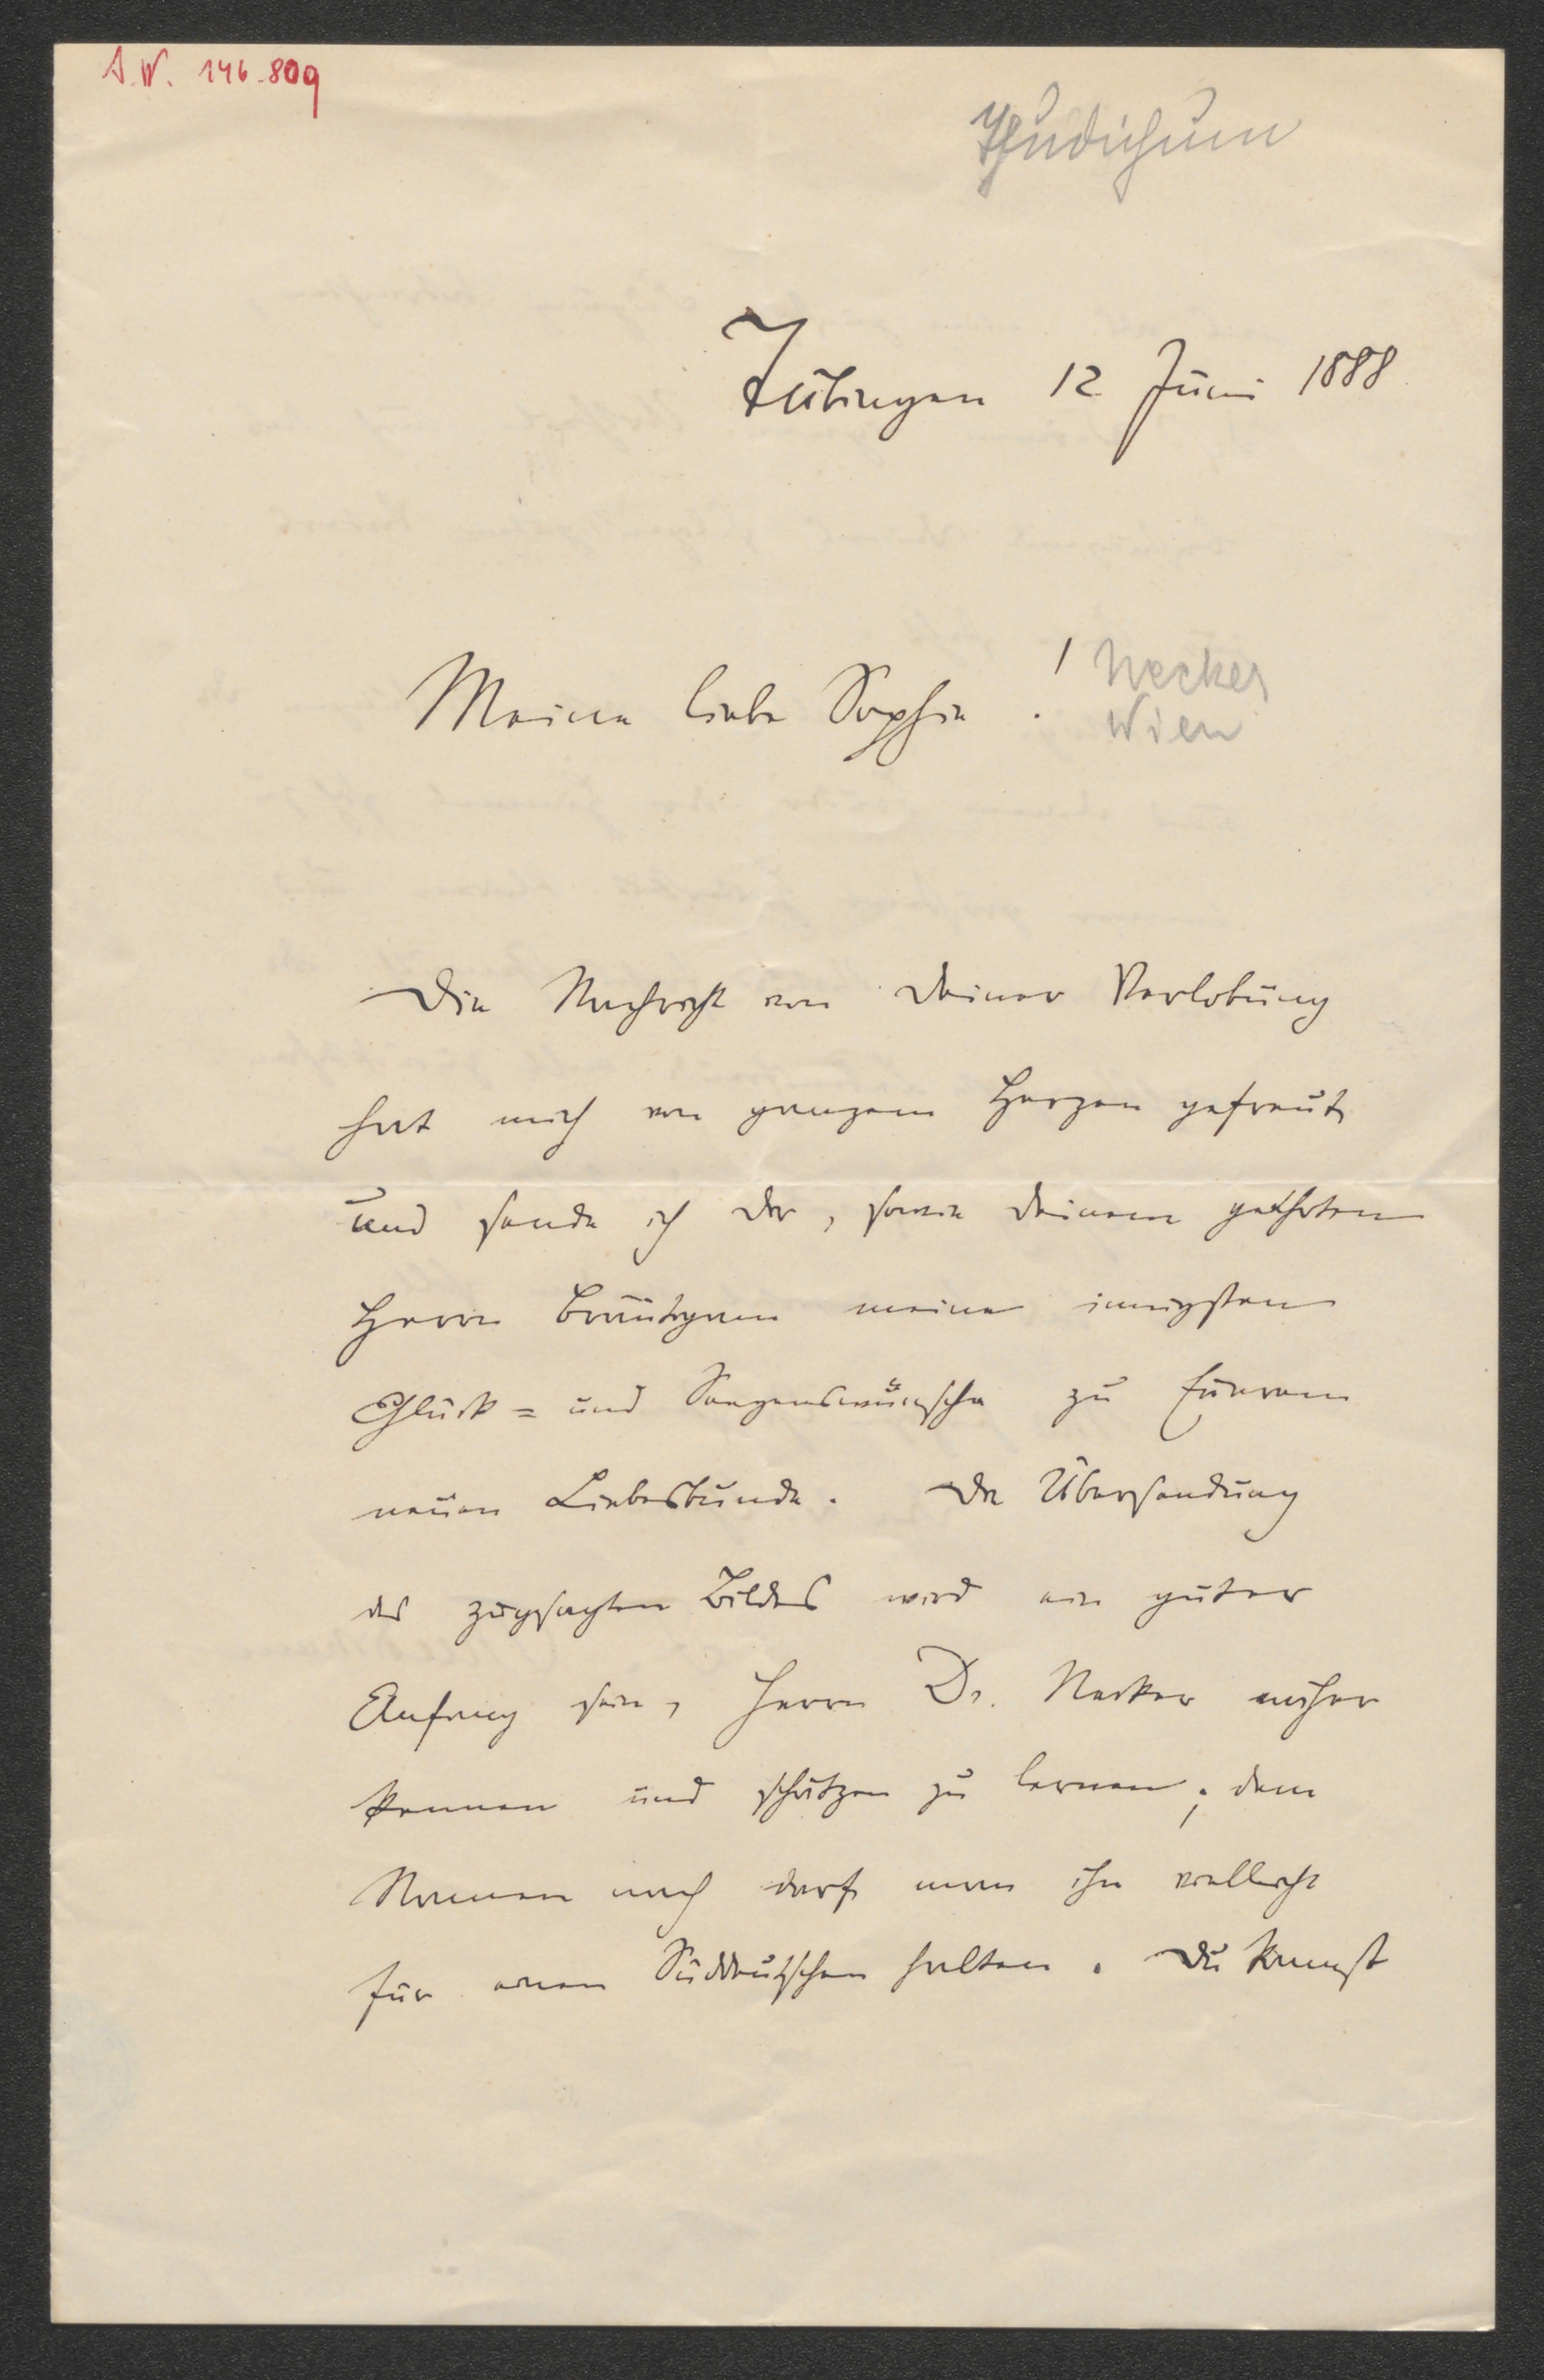 I.N. 146.809
Thudichum
Tübingen 12 Juni 1888
Meine liebe Sophie !
Necker
Wien
Die Nachricht von Deiner Verlobung
hat mich von ganzem Herzen gefreut
und sende ich Dir, sowie Deinem geehrten
Herrn Bräutigam meine innigsten
Glück= und Seegenswünsche zu Euerem
neuen Liebesbunde. Die Übersendung
des zugesagten Bildes wird ein guter
Anfang sein, Herrn Dr. Necker näher
kennen und schätzen zu lernen; dem
Namen nach darf man ihn vielleicht
für einen Süddeutschen halten. Du kannst